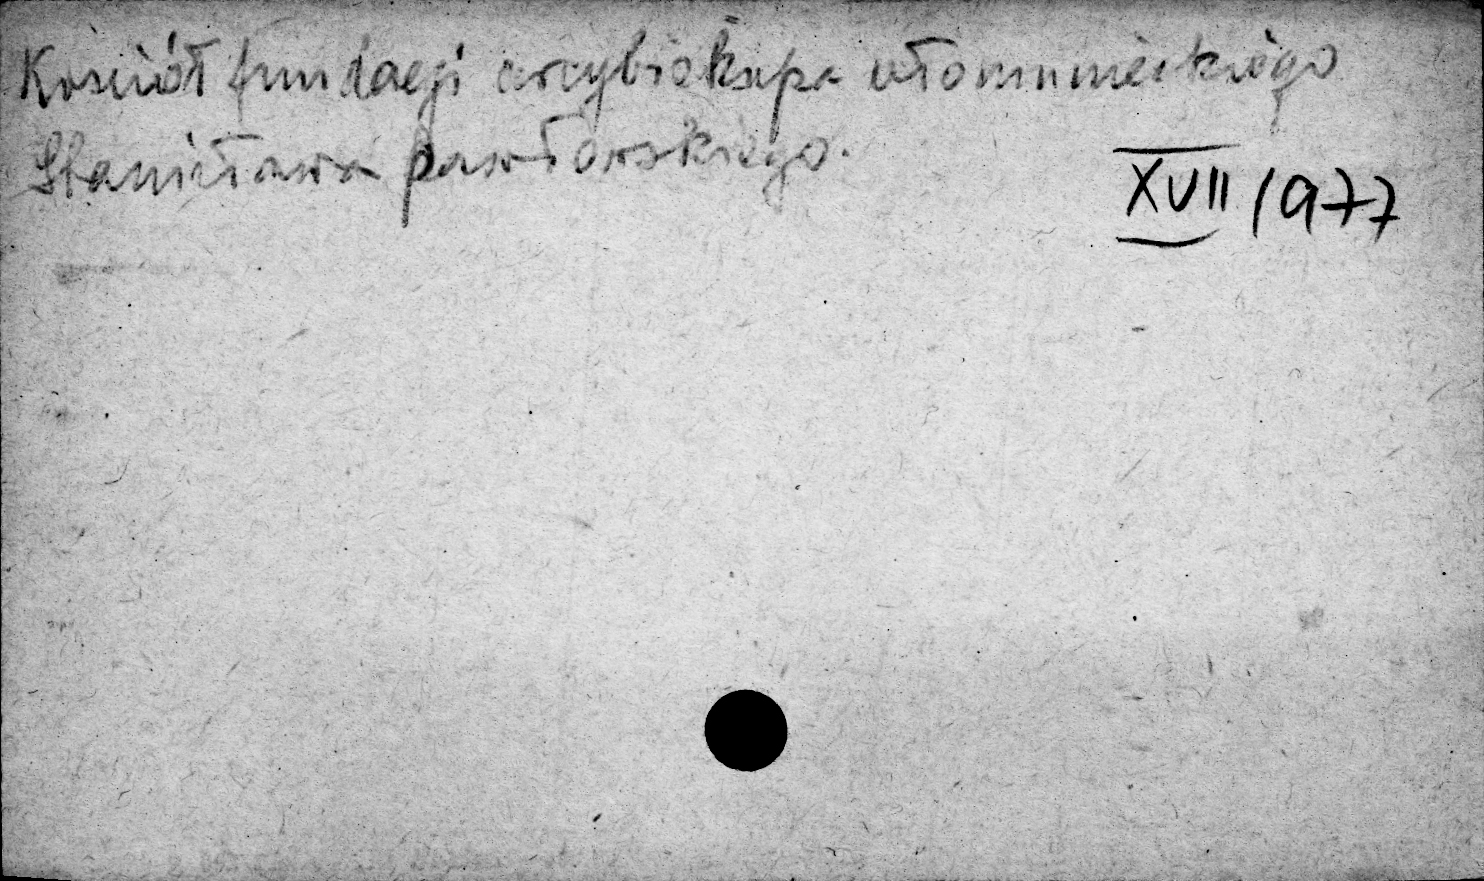 Kościół fundacji arcybiskupa ołomunieckiego
Stanisława pawłowskiego.
XVII 1977